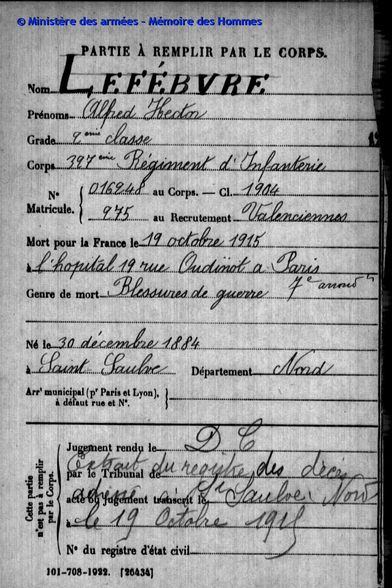 © Ministère des armées - Mémoire des Hommes
PARTIE À REMPLIR PAR LE CORPS.
Nom LEFÉBVRE
Prénoms Alfred Hector
Grade 2eme classe
Corps 327eme Régiment d'Infanterie
N° Matricule. { 016248 au Corps. — Cl. 1904
975 au Recrutement Valenciennes
Mort pour la France le 19 octobre 1915
à l'hopital 19 rue Oudinot a Paris
Genre de mort Blessures de guerre 7e arrondt
Né le 30 décembre 1884
à Saint Saulve Département Nord
Arrt municipal (pr Paris et Lyon), à défaut rue et N°.
Cette partie n'est pas à remplir par le Corps.
Jugement rendu le D C
par le Tribunal de Extrait du registre des décès
acte ou jugement transcrit le adressé à St Saulve Nord
à le 19 Octobre 1915
N° du registre d'état civil
101-708-1922. [26434]